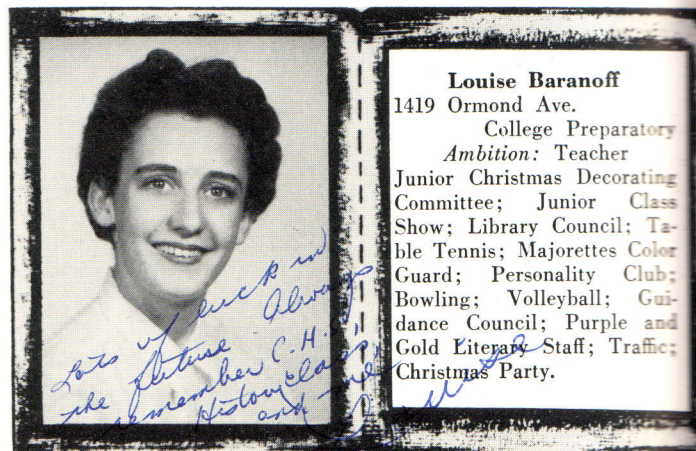 Louise Baranoff
1419 Ormond Ave.
College Preparatory
Ambition: Teacher
Junior Christmas Decorating
Committee; Junior Class
Show; Library Council; Ta-
ble Tennis; Majorettes Color
Guard; Personality Club;
Bowling; Volleyball; Gui-
dance Council; Purple and
Gold Literary Staff; Traffic;
Christmas Party.
Lots of luck in
the future. Always
remember C.H.S.,
History class,
and me
Louise